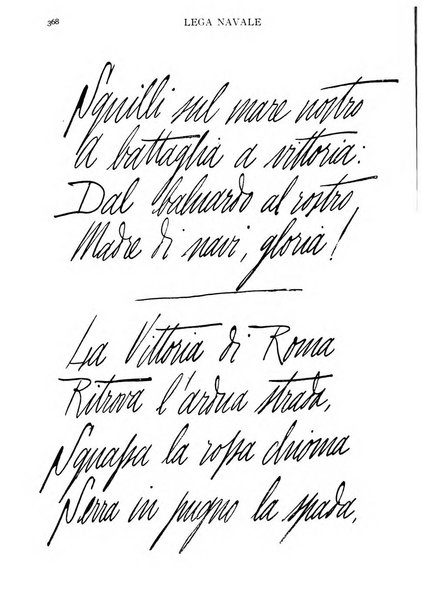 368
LEGA NAVALE
Squilli sul mare nostro
A battaglia a vittoria:
Dal baluardo al rostro
Madre di navi, gloria!
La Vittoria di Roma
Ritrova l'ardua strada,
Squassa la rossa chioma
Serra in pugno la spada,